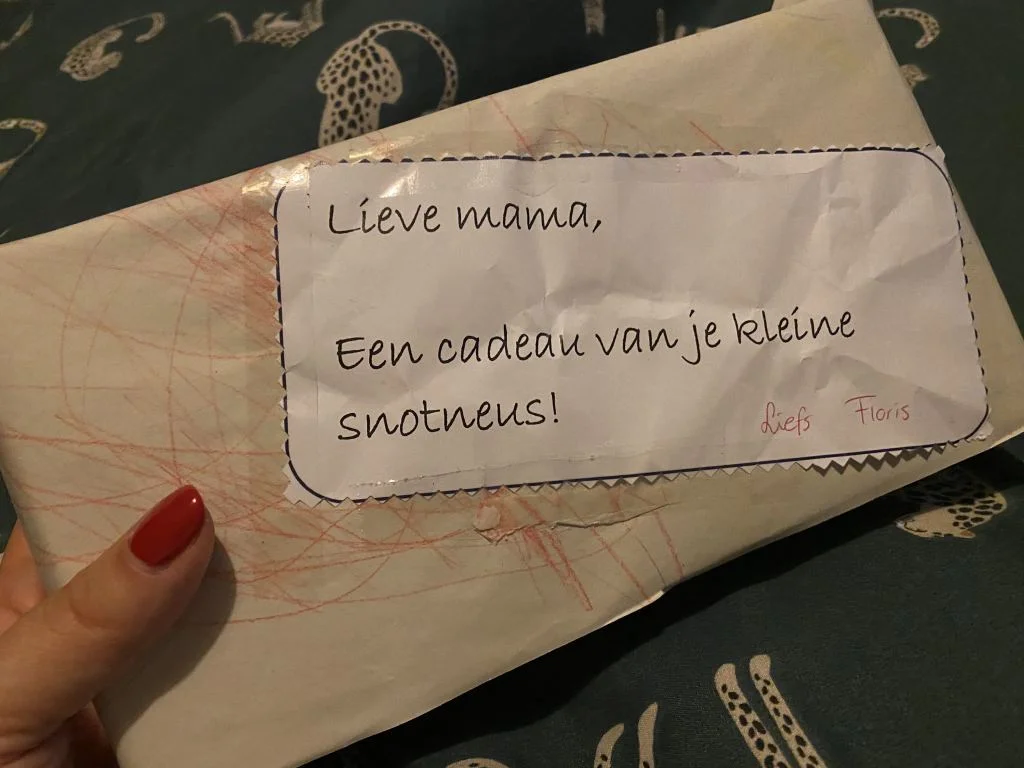 Lieve mama,
Een cadeau van je kleine
snotneus!
Liefs Floris